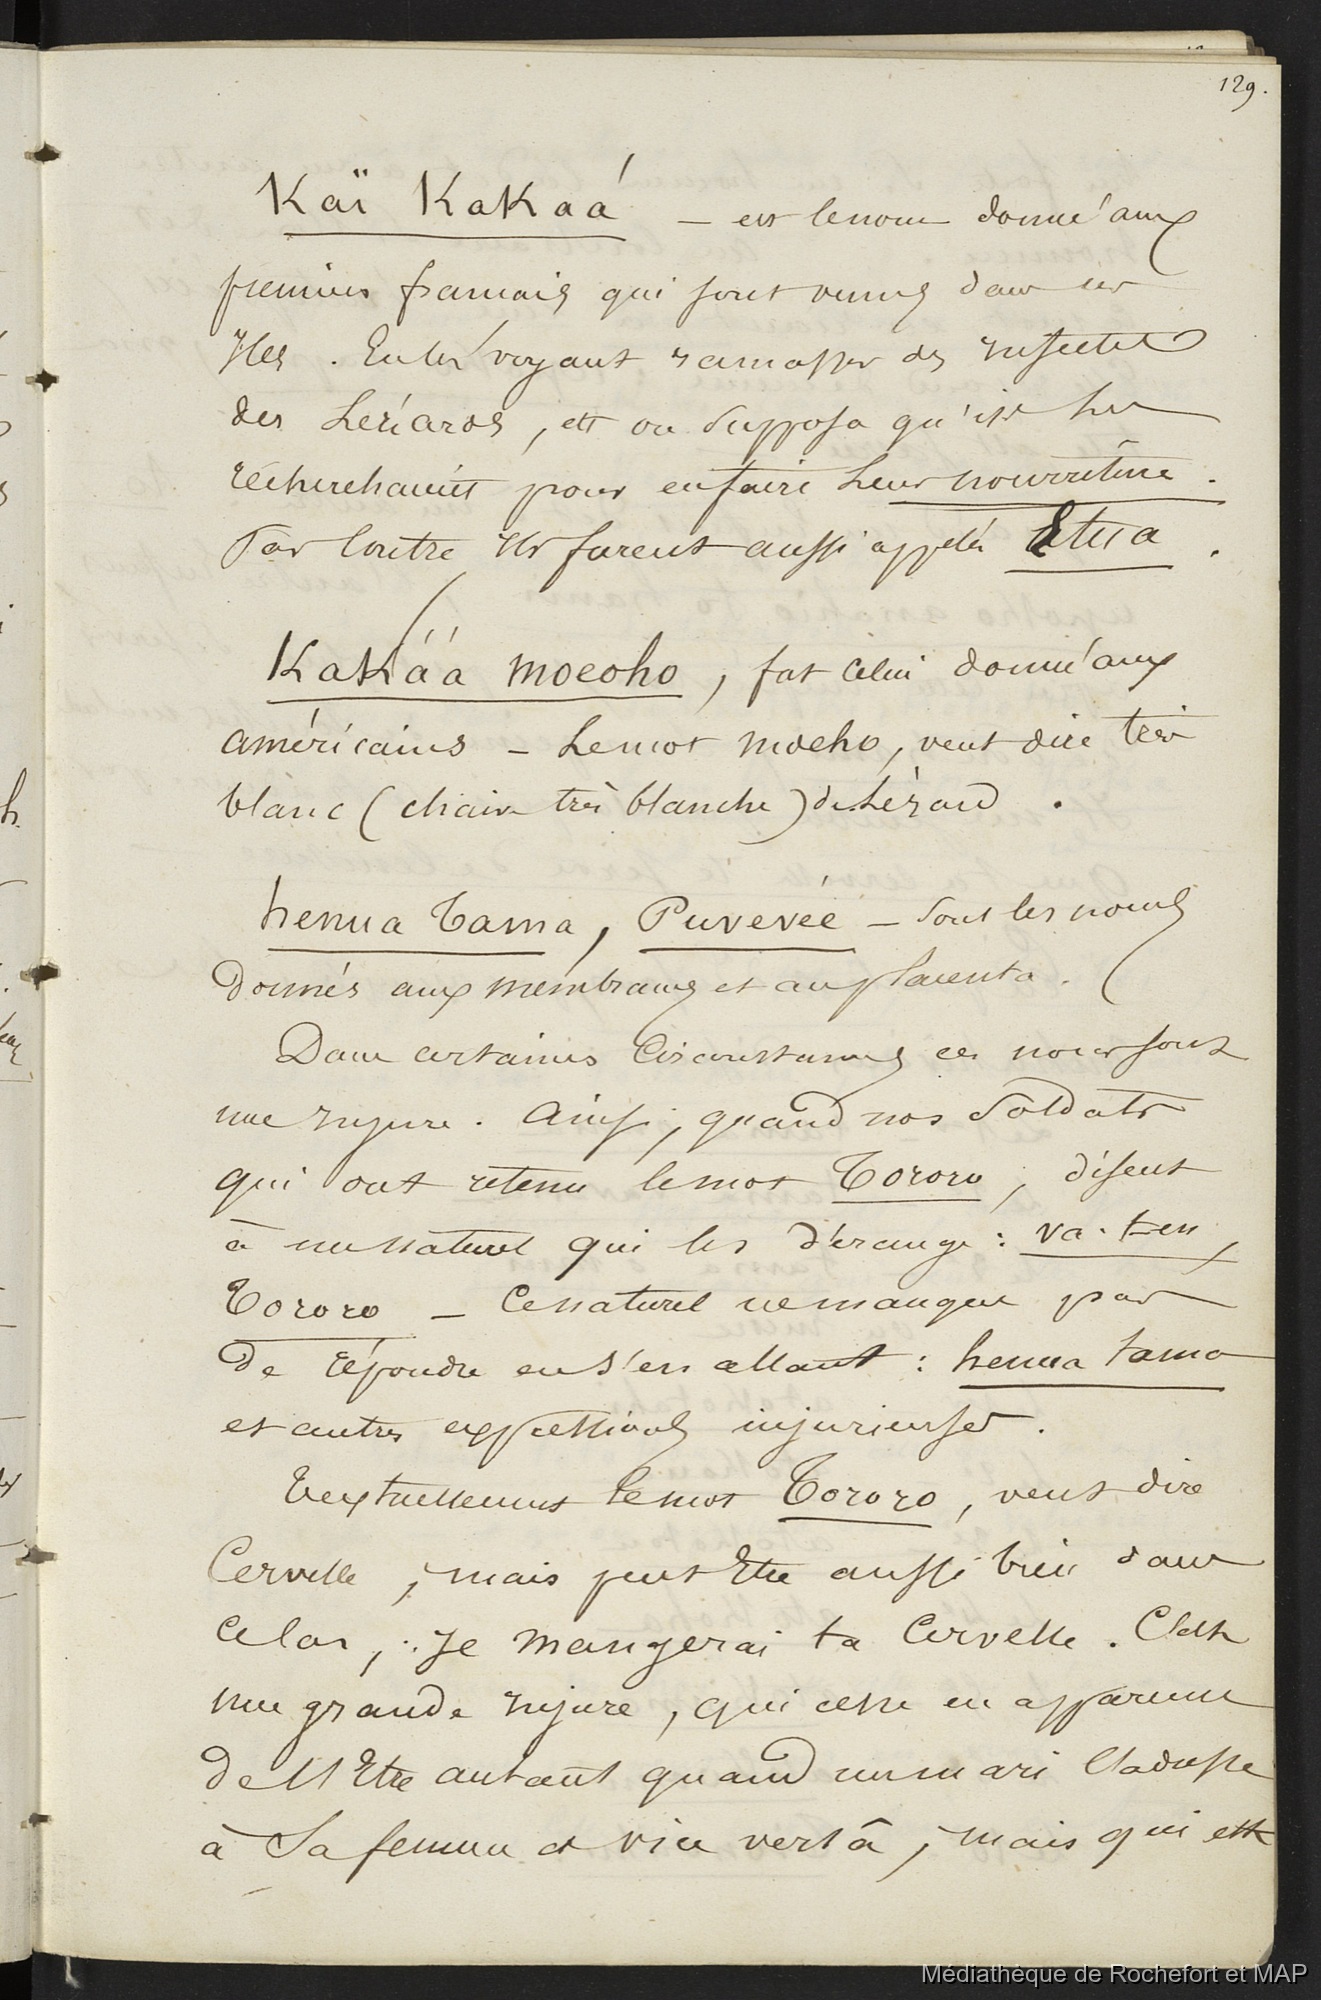 129.
Kaï Kakaá – est le nom donné aux
premiers français qui sont venus dans ces
Iles. En les voyant ramasser des insectes
des Lézards, et on supposa qu'ils les
recherchaient pour en faire leur nourriture.
Par contre ils furent aussi appelés Etua.
Kakáá moeoho, fut celui donné aux
américains – Le mot moeho, veut dire très
blanc (chair très blanche) de Lézard.
henua Tama, Puvevée – sont les noms
donnés aux membranes et au placenta.
Dans certaines Circonstances ces noms sont
une injure. Ainsi, quand nos Soldats
qui ont retenu le mot Tororo, disent
à un naturel qui les dérange : va-t-en
Tororo – Ce naturel ne manque pas
de répondre en s'en allant : henua tama
et autres expressions injurieuses.
Textuellement le mot Tororo, veut dire
Cervelle, mais peut Etre aussi bien dans
Celas, : Je mangerai ta Cervelle. C'est
une grande injure, qui cesse en apparence
de l'Etre autant quand un mari l'adresse
à Sa femme et vice versâ, mais qui est
Médiathèque de Rochefort et MAP